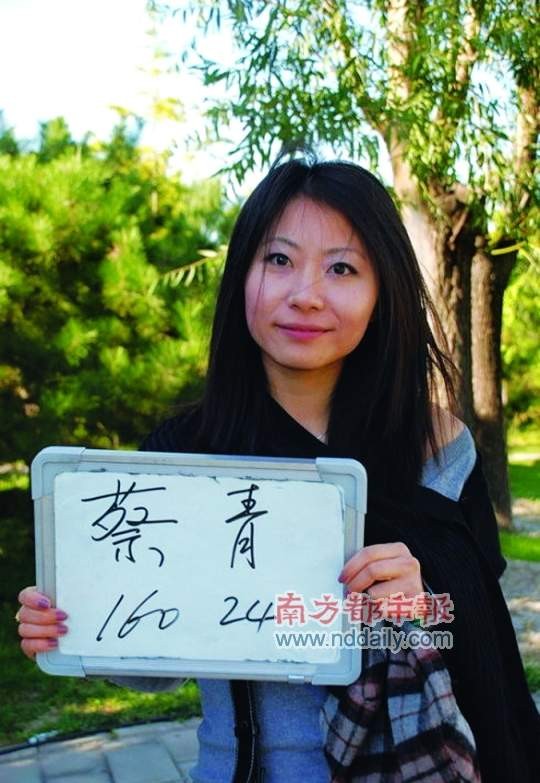 蔡青
160 24
南方都市報
www.nddaily.com